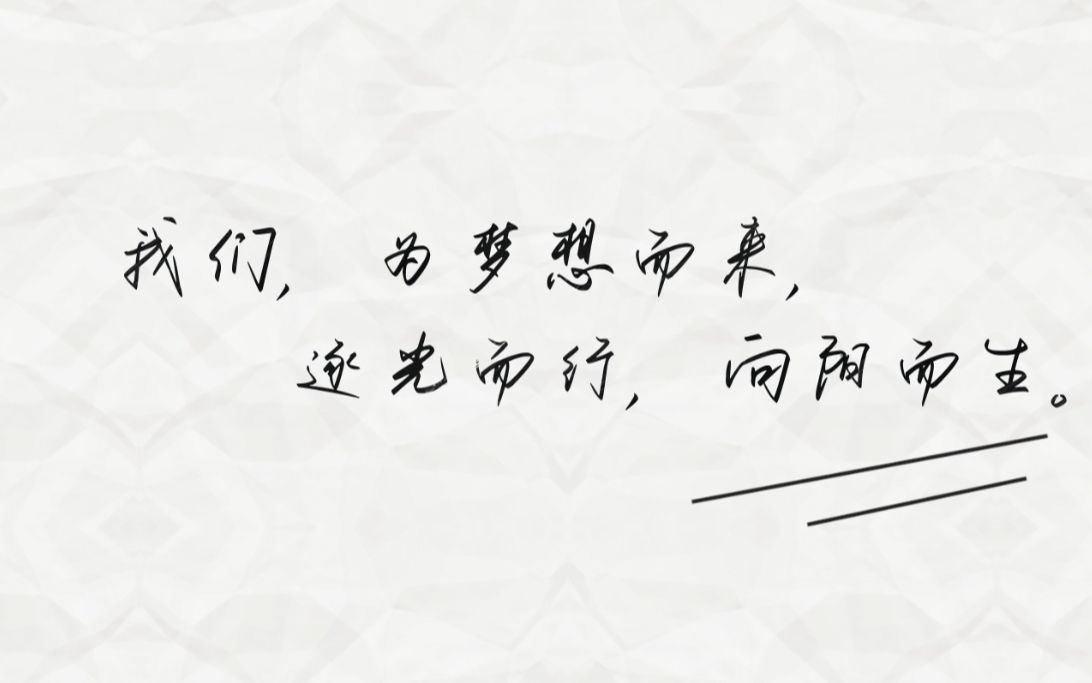 我们，为梦想而来，
逐光而行，向阳而生。